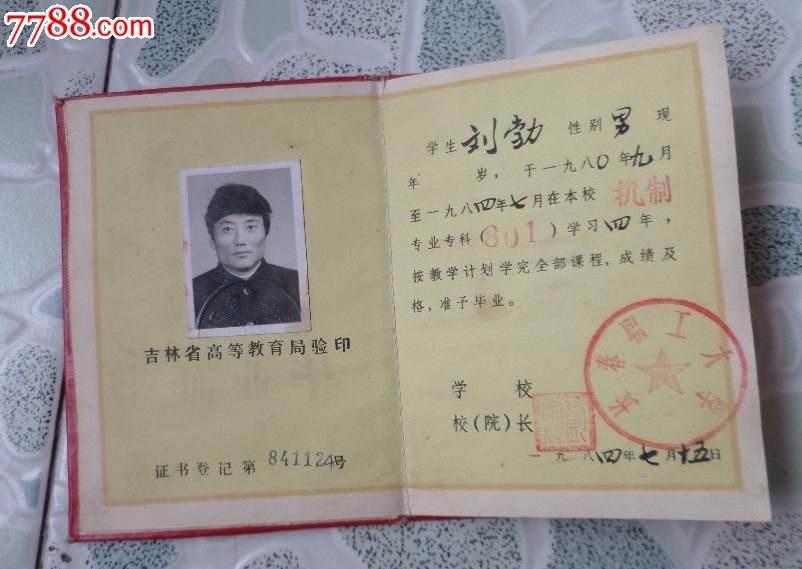 7788.com
吉林省高等教育局验印
证书登记第841124号
学生刘勃 性别男 现
年 岁，于一九八〇年九月
至一九八四年七月在本校 机制
专业专科(801)学习四年，
按教学计划学完全部课程，成绩及
格，准予毕业。
长春职工大学
学 校
校(院)长
一九八四年七月十五日